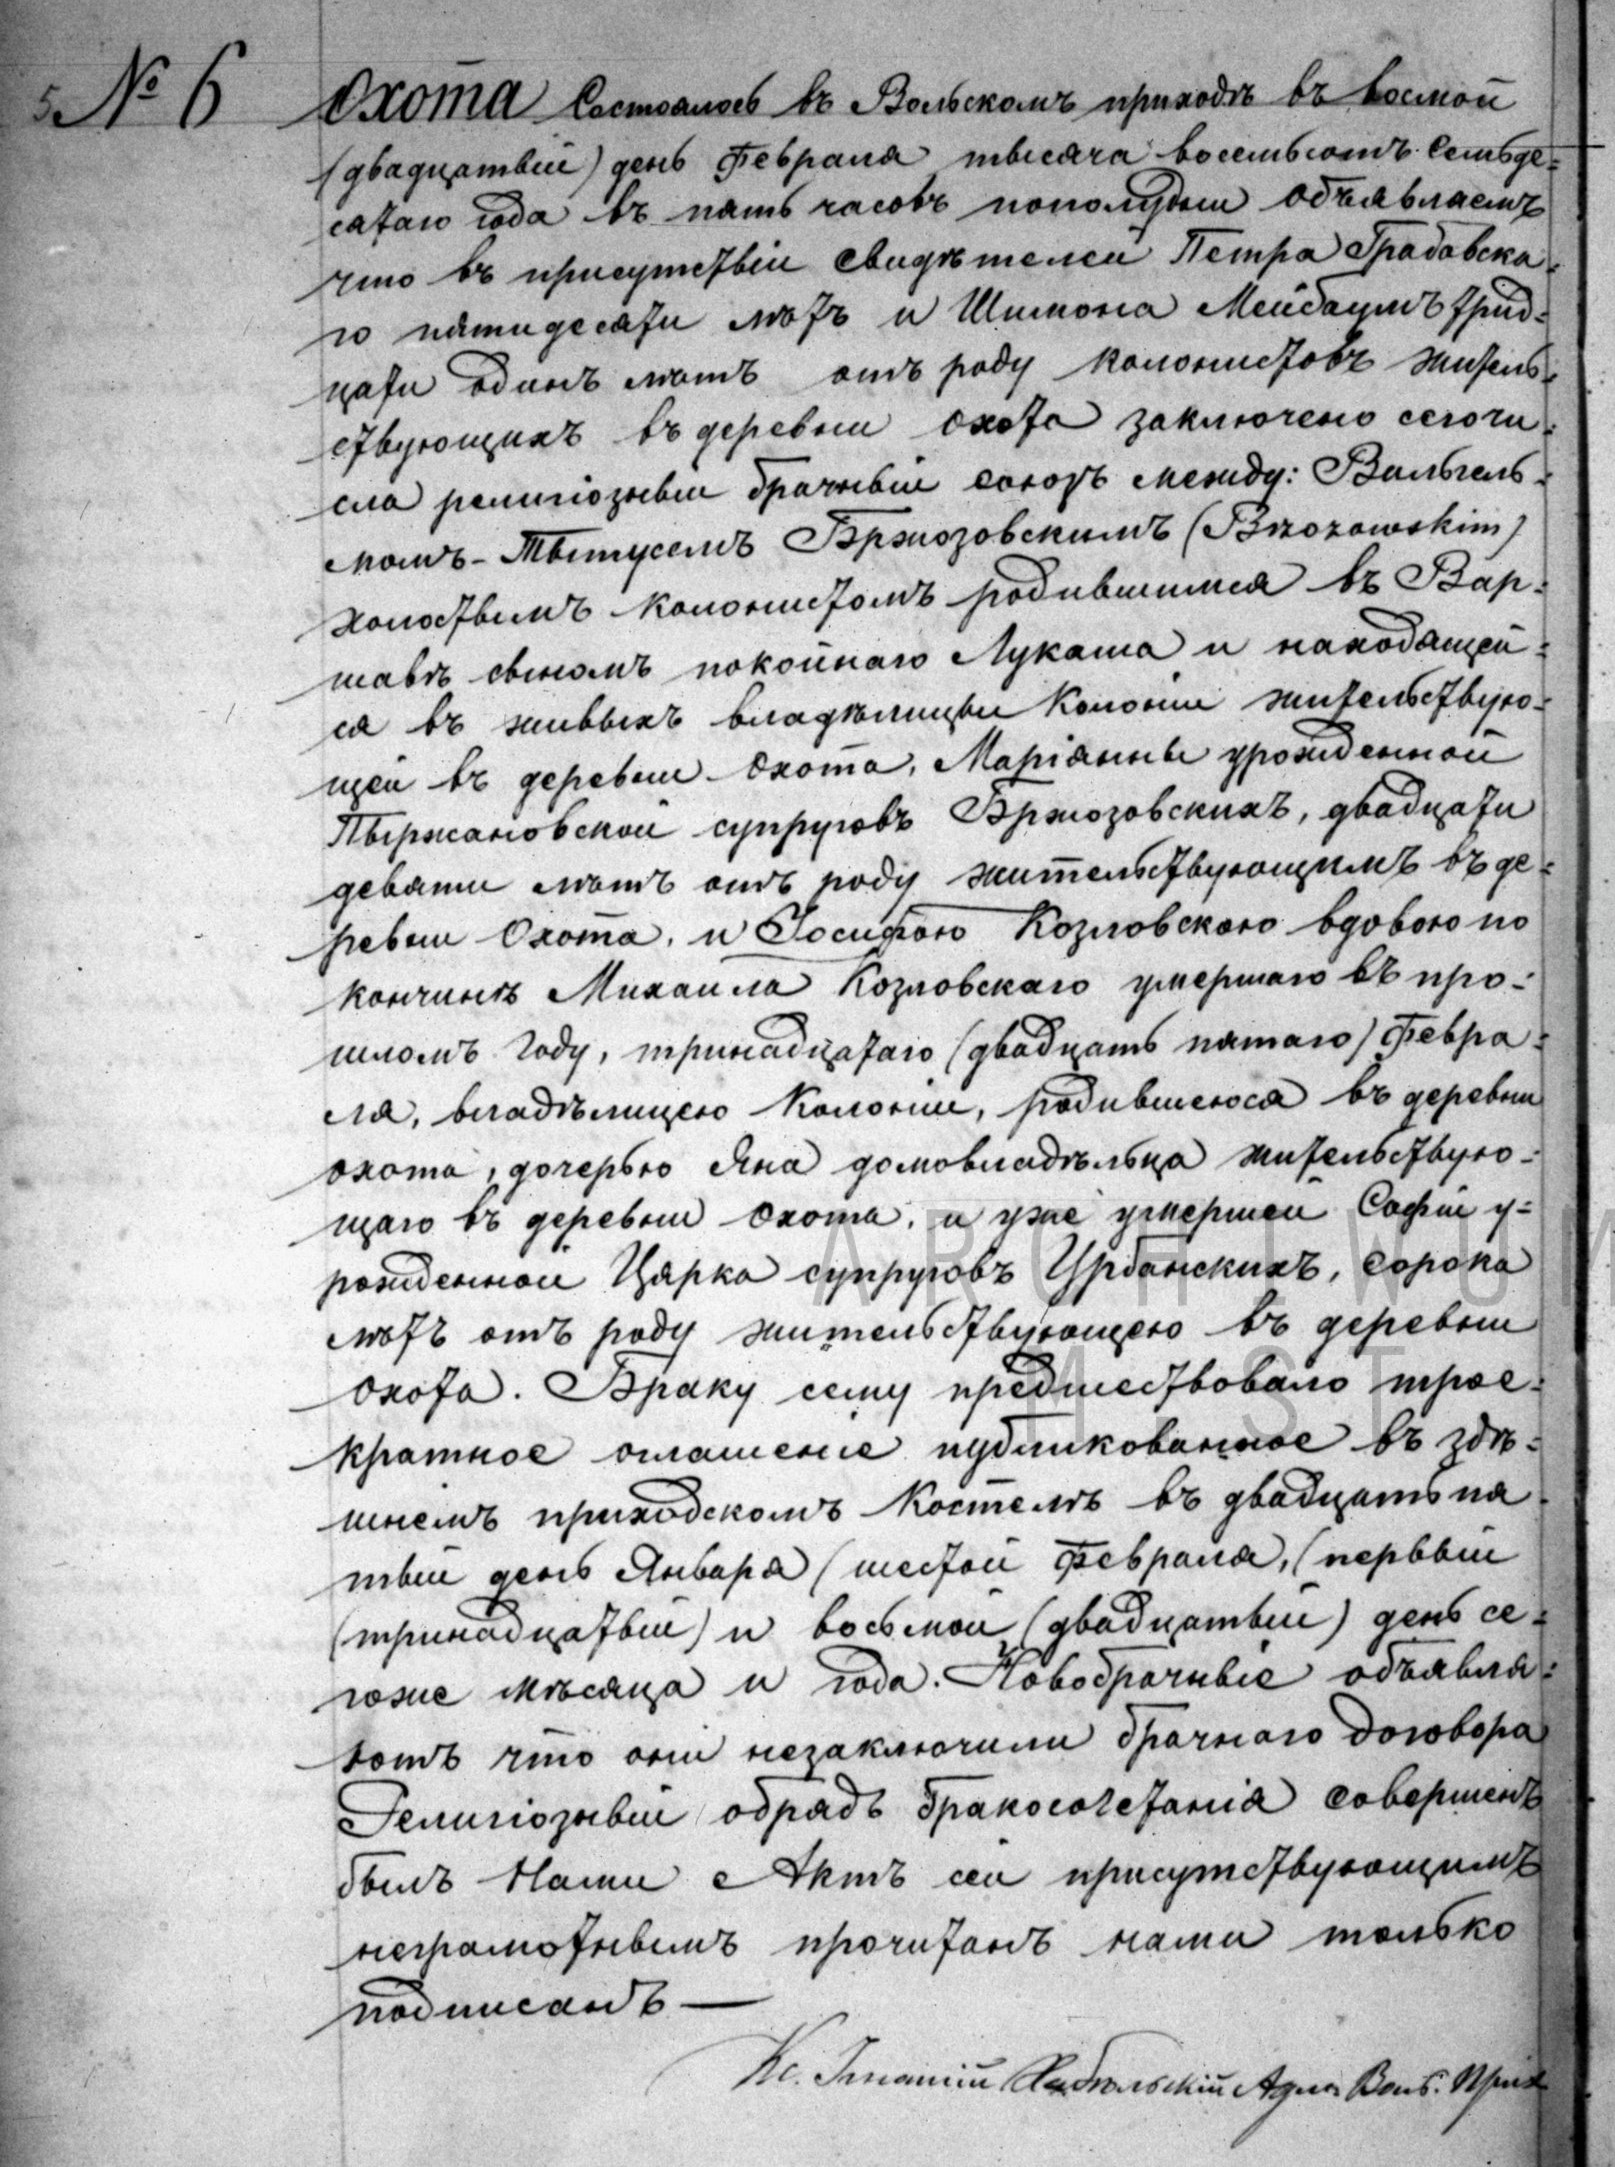 № 6 Охота Состоялось въ Вольскомъ приходѣ въ восмой
(двадцатый) день Февраля тысяча восемьсотъ семьде=
сятаго года въ пять часовъ пополудни Объявляемъ
что въ присутствіи свидѣтелей Петра Грабовска=
го пятидесяти лѣтъ и Шимона Мейбаумъ трид=
цати одинъ лѣтъ отъ роду колонистовъ житель=
ствующихъ въ деревни Охота заключено сегочи=
сла религіозный брачный союзъ между: Вильгель=
момъ-Тытусемъ Бржозовскимъ (Brzozowskim)
холостымъ колонистомъ родившимся въ Вар=
шавѣ сыномъ покойнаго Лукаша и находящей=
ся въ живыхъ владѣлицы Колоніи жительствую=
щей въ деревни Охота, Маріянны урожденной
Пыржановской супруговъ Бржозовскихъ, двадцати
девяти лѣтъ отъ роду жительствующимъ въ де=
ревни Охота, и Іосифою Козловскою вдовою по
кончинѣ Михаила Козловскаго умершаго въ про=
шломъ году, тринадцатаго (двадцать пятаго) Февра=
ля, владѣлицею Колоніи, родившеюся въ деревни
Охота, дочерью Яна домовладѣльца жительствую=
щаго въ деревни Охота, и уже умершей Софіи у=
рожденной Цярка супруговъ Урбанскихъ, сорока
лѣтъ отъ роду жительствующею въ деревни
Охота. Браку сему предшествовало трое=
кратное оглашеніе публикованное въ здѣ=
шнемъ приходскомъ Костелѣ въ двадцать пя
тый день Января (шестой Февраля, (первый
(тринадцатый) и восьмой (двадцатый) день се=
гоже мѣсяца и года. Новобрачные объявля=
ютъ что они незаключили брачнаго договора
Религіозный обрядъ бракосочетанія совершенъ
былъ Нами Актъ сей присутствующимъ
неграмотнымъ прочитанъ нами только
подписанъ —
Кс. Игнатій Адм. Вольс. Прих
ARCHIWUM
M. ST